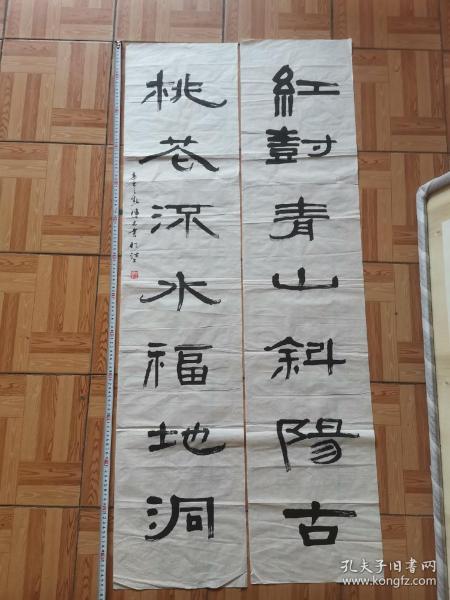 紅樹青山斜陽古
桃花流水福地洞
孔夫子旧书网
www.kongfz.com